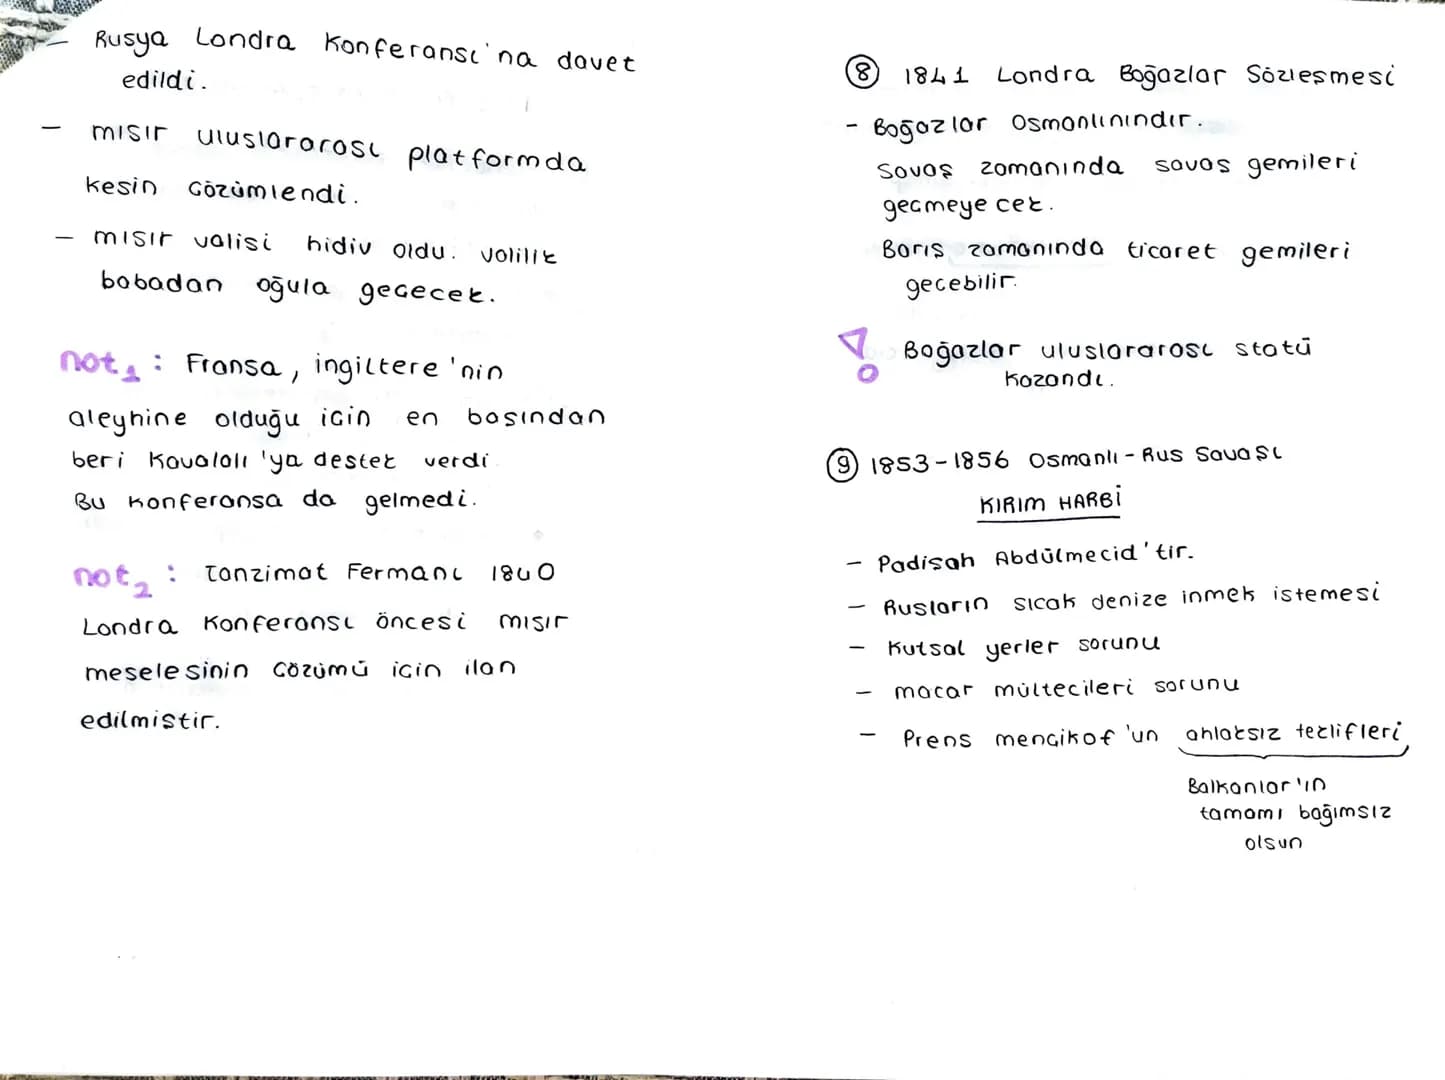 - Rusya Londra Konferansı'na davet
edildi.
- mısır uluslararası platformda
kesin çözümlendi.
- mısır valisi hidiv oldu. valilik
babadan oğula geçecek.
not1 : Fransa, ingiltere'nin
aleyhine olduğu için en başından
beri Kavalalı'ya destek verdi
Bu konferansa da gelmedi.
not2 : Tanzimat Fermanı 1840
Londra Konferansı öncesi mısır
meselesinin çözümü için ilan
edilmiştir.
8 1841 Londra Boğazlar Sözleşmesi
- Boğazlar Osmanlınındır.
Savaş zamanında savaş gemileri
geçmeyecek.
Barış zamanında ticaret gemileri
geçebilir.
! Boğazlar uluslararası statü
kazandı.
9 1853-1856 Osmanlı-Rus Savaşı
KIRIM HARBİ
- Padişah Abdülmecid'tir.
- Rusların sıcak denize inmek istemesi
- Kutsal yerler sorunu
- macar mültecileri sorunu
- Prens mençikof'un ahlaksız teklifleri
Balkanlar'ın
tamamı bağımsız
olsun